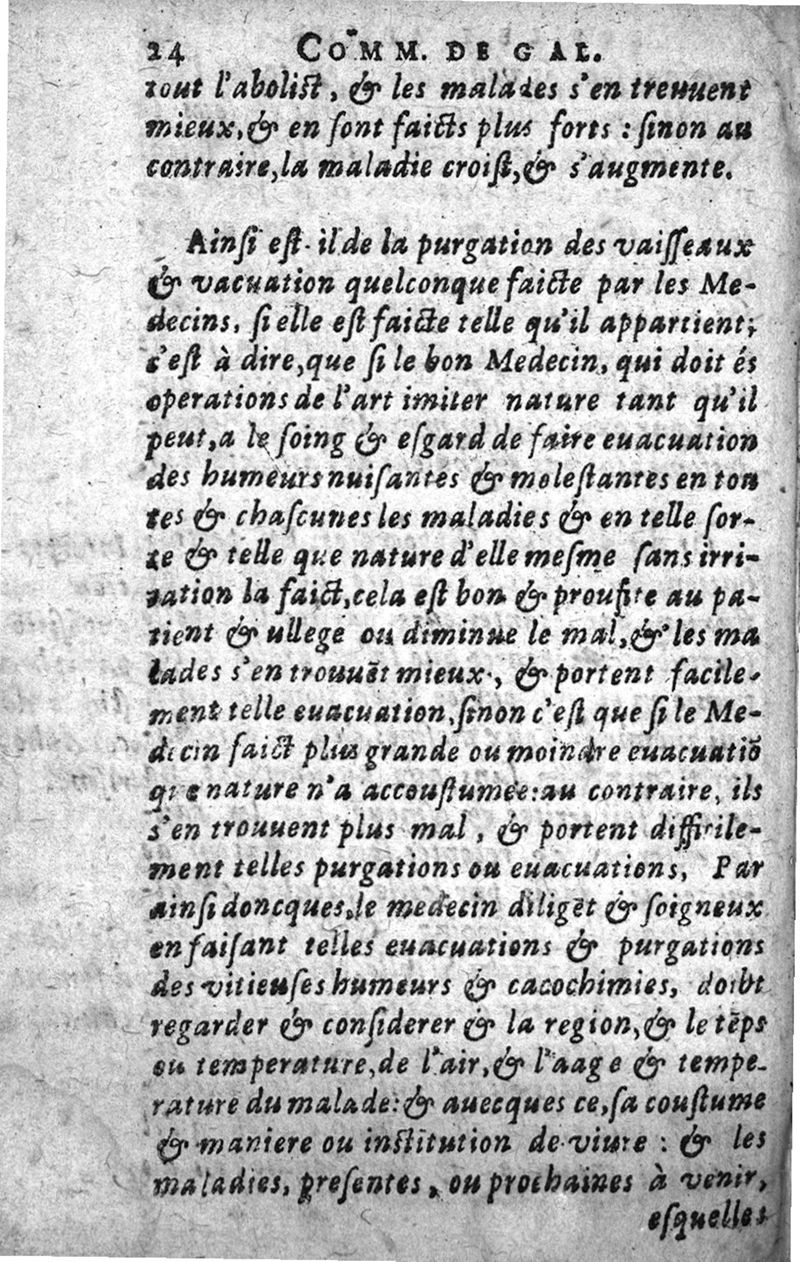 24 COMM. DE GAL.
tout l'abolist, & les malades s'en treuuent
mieux, & en sont faicts plus forts : sinon au
contraire, la maladie croist, & s'augmente.
Ainsi est il de la purgation des vaisseaux
& vacuation quelconque faicte par les Me-
decins, si elle est faicte telle qu'il appartient;
c'est à dire, que si le bon Medecin, qui doit és
operations de l'art imiter nature tant qu'il
peut, a le soing & esgard de faire euacuation
des humeurs nuisantes & molestantes en tou
tes & chascunes les maladies & en telle sor-
te & telle que nature d'elle mesme sans irri-
tation la faict, cela est bon & proufite au pa-
tient & allege ou diminue le mal, & les ma
lades s'en trouuēt mieux, & portent facile-
ment telle euacuation, sinon c'est que si le Me-
decin faict plus grande ou moindre euacuatiō
que nature n'a accoustumée: au contraire, ils
s'en trouuent plus mal, & portent difficile-
ment telles purgations ou euacuations, Par
ainsi doncques, le medecin diligēt & soigneux
en faisant telles euacuations & purgations
des vitieuses humeurs & cacochimies, doibt
regarder & considerer & la region, & le tēps
ou temperature, de l'air, & l'aage & tempe-
rature du malade: & auecques ce, sa coustume
& maniere ou institution de viure : & les
maladies, presentes, ou prochaines à venir,
esquelles